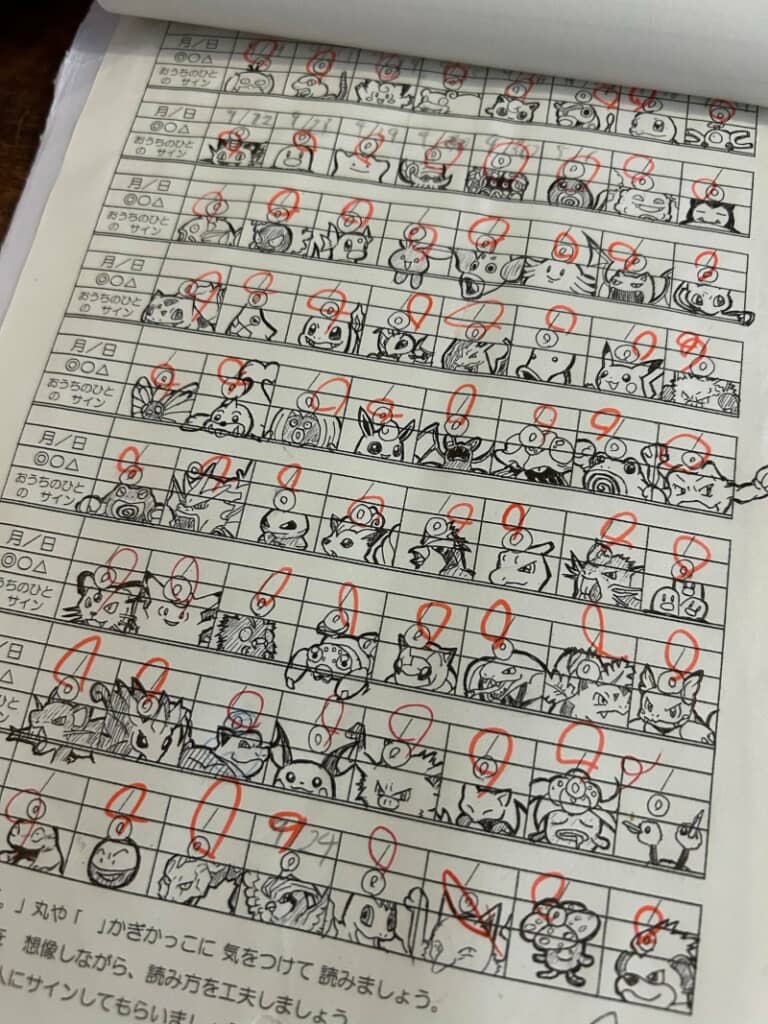 月／日
◎○△
おうちのひと
の サイン
月／日
◎○△
おうちのひと
の サイン
月／日
◎○△
おうちのひと
の サイン
月／日
◎○△
おうちのひと
の サイン
月／日
◎○△
おうちのひと
の サイン
月／日
◎○△
おうちのひと
の サイン
月／日
◎○△
うちのひと
サイン
／日
△
ひと
ン
。」丸や「 」かぎかっこに 気をつけて 読みましょう。
を 想像しながら、読み方を工夫しましょう
人にサインしてもらいまし